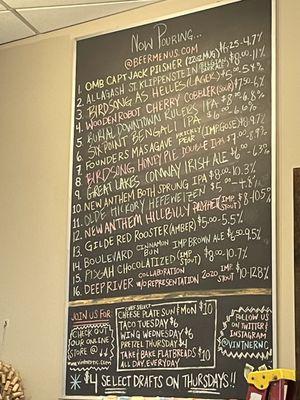 Now Pouring...
@BEERMENUS.COM
1. OMB CAPT JACK PILSNER (12oz MUG) $6.25-4.7%
2. ALLAGASH ST. KLIPPENSTEIN
3. BIRDSONG AS HELLES (LAGER) $5
4. WOODEN ROBOT CHERRY COBBLER (SOUR)
5. BUHAI DOWNTOWN RULERS IPA
6. SIX POINT BENGALI IPA $6-6.6%
7. FOUNDERS MAS AGAVE PRICKLY PEAR (IMP GOSE)
8. BIRDSONG HONEY PIE DOUBLE IPA $7
9. GREAT LAKES CONWAY IRISH ALE $6-6.3%
10. NEW ANTHEM BOTH SPRUNG IPA $8-10.3%
11. OLDE HICKORY HEFEWEIZEN $5-4.8%
12. NEW ANTHEM HILLBILLY (IMP STOUT) $8-10.5%
13. GILDE RED ROOSTER (AMBER) $5-5.5%
14. BOULEVARD CINNAMON BUN IMP BROWN ALE
15. PISGAH CHOCOLATIZED (IMP STOUT) $9-10.7%
16. DEEP RIVER COLLABORATION W/ REPRESENTATION 2020 IMP STOUT $10-12.8%
JOIN US FOR
CHECK OUT
OUR ONLINE
STORE @
VINTNERNC.COM
CHEF SELECT
CHEESE PLATE SUN & MON $10
TACO TUESDAY $6
WING WEDNESDAY $6
PRETZEL THURSDAY $4
TAKE & BAKE FLATBREADS $10
ALL DAY, EVERY DAY
FOLLOW US
ON TWITTER
& INSTAGRAM
@VINTNERNC
$4 SELECT DRAFTS ON THURSDAYS!!